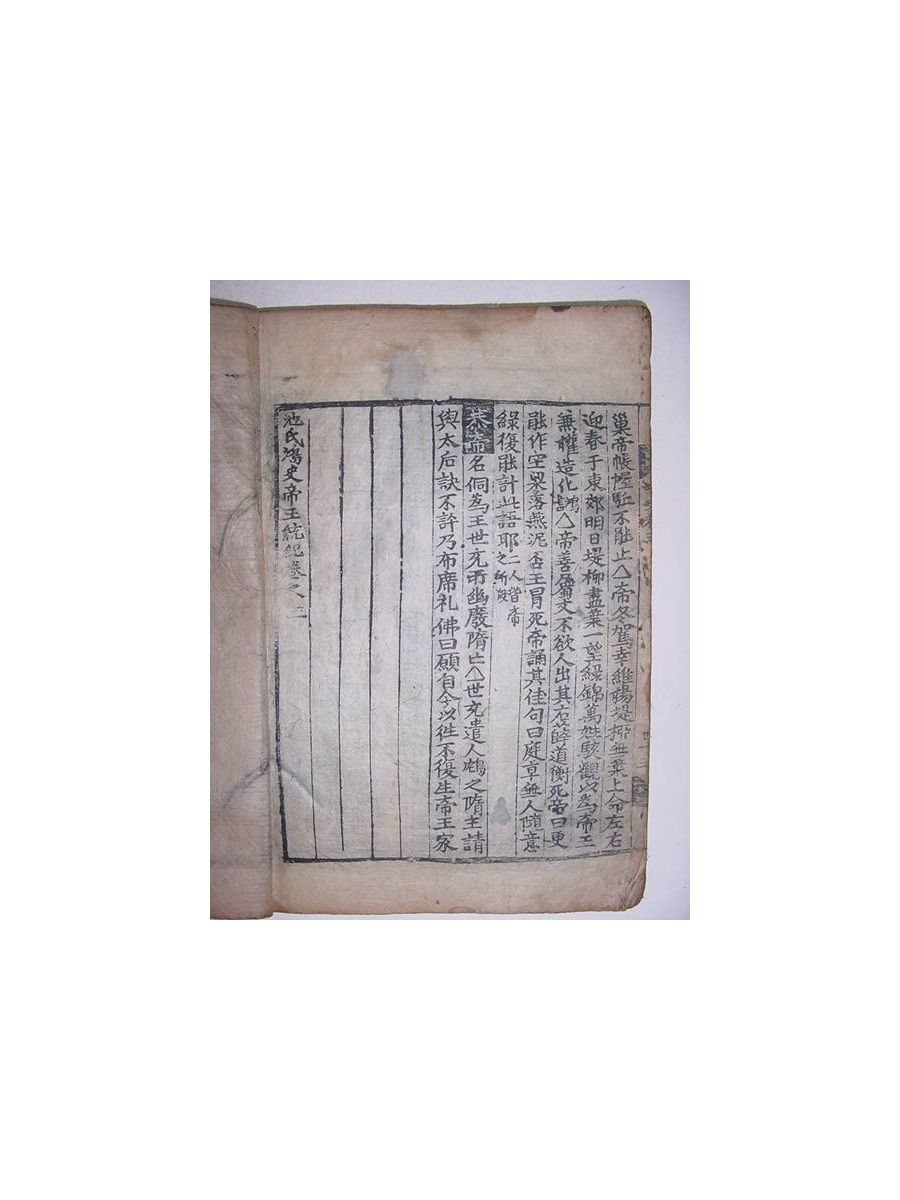 巢帝帳幄駈不能止△帝冬駕幸維揚堤柳無葉上命左右
迎春于東郊明日堤柳盡葉一望綠錦萬姓駭觀以為帝王
兼權造化 △帝善属文不欲人出其右薛道衡死帝曰更
能作空梁落燕泥否王冑死帝誦其佳句曰庭草無人随意
綠復能計此語耶二人皆帝之所殺
恭帝名侗為王世充所幽廢隋亡△世充遣人鴆之隋主請
與太后訣不許乃布席礼佛曰願自今以徃不復生帝王家
池氏鴻史帝王統紀卷之三